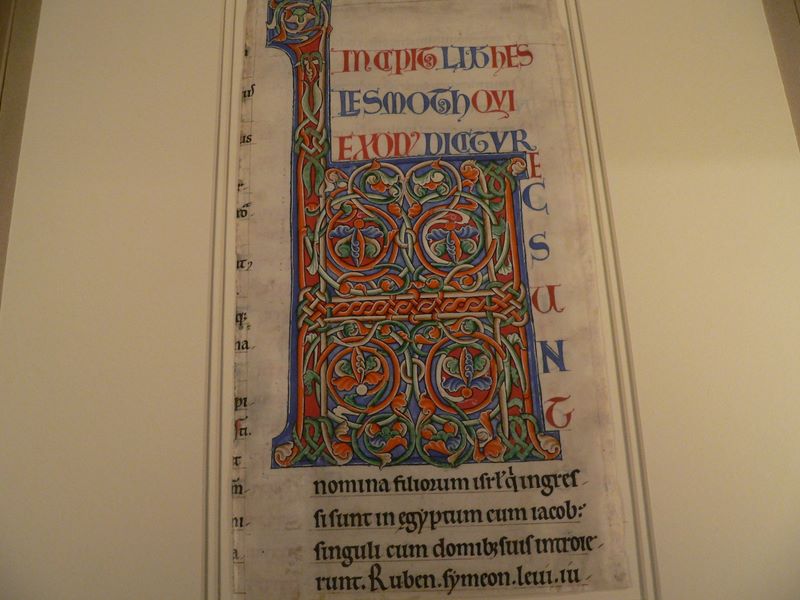 INCIPIT LIB HES
LESMOTH QVI
EXOD' DICITVR
H
E
C
S
U
N
T
nomina filiorum isrl' q̇ ingres-
si sunt in egyptum cum iacob:
singuli cum domibȝ suis introie-
runt. Ruben. symeon. leui. iu-